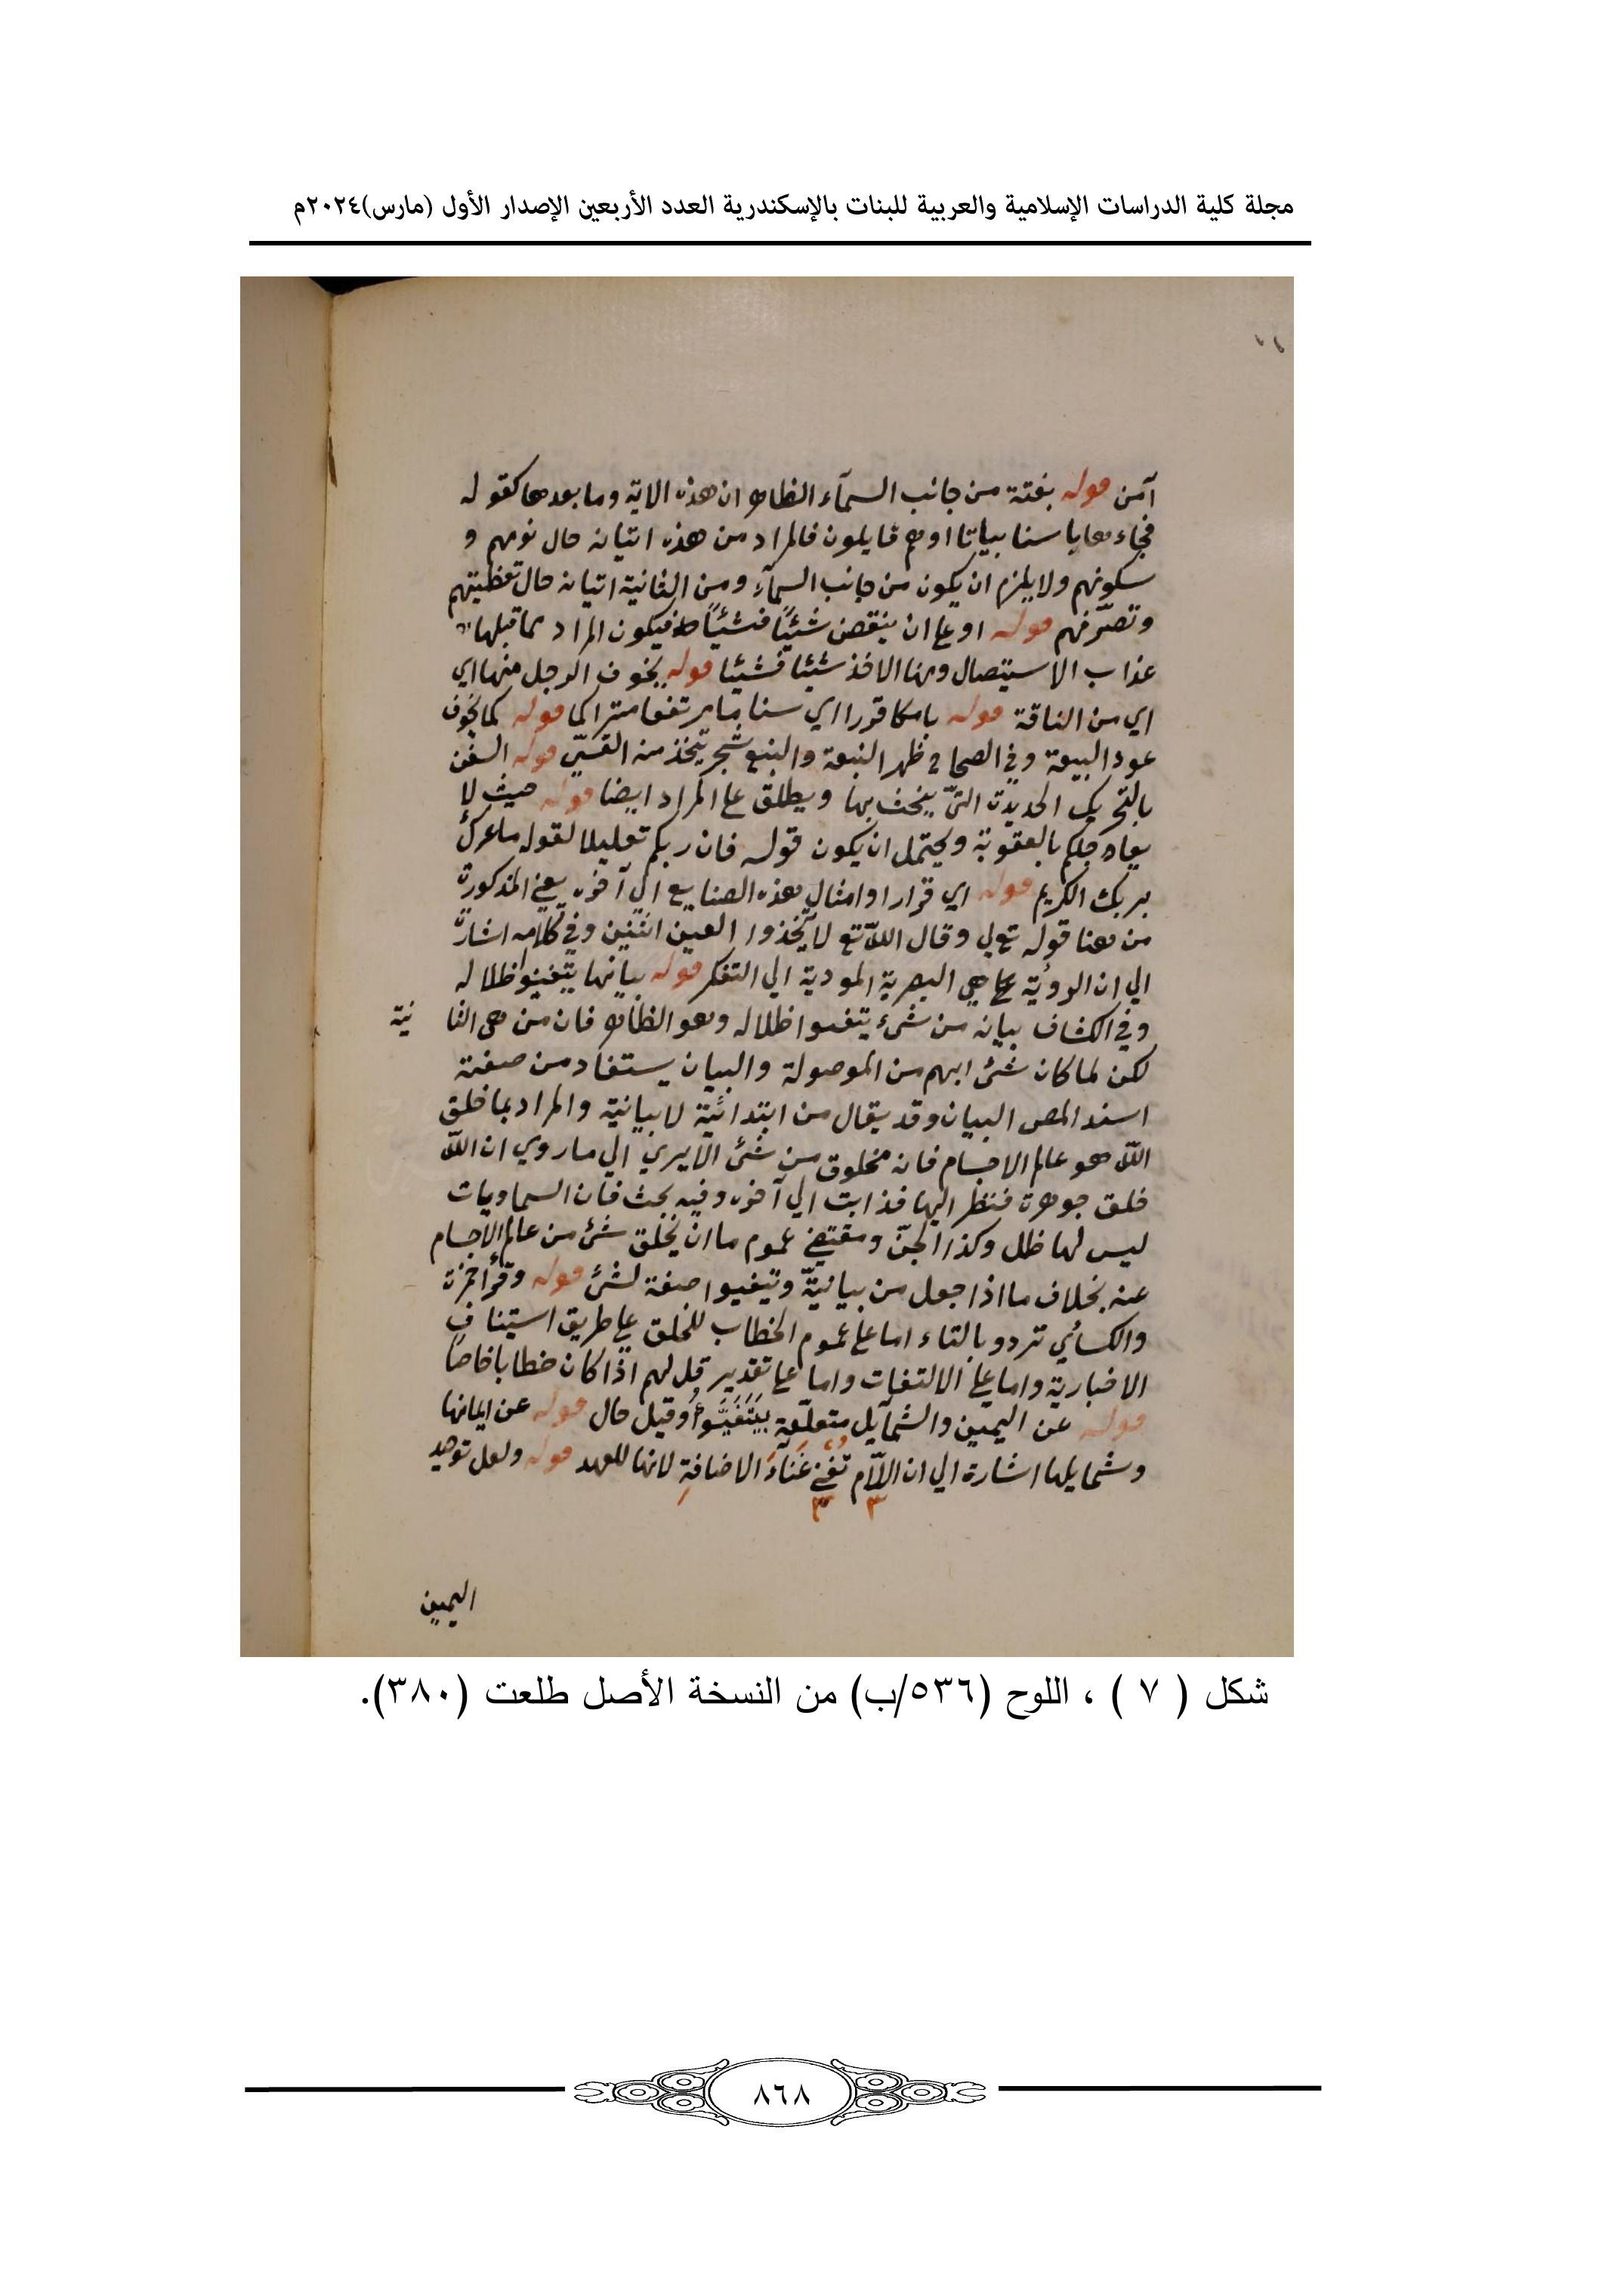 مجلة كلية الدراسات الإسلامية والعربية للبنات بالإسكندرية العدد الأربعين الإصدار الأول (مارس)٢٠٢٤م
آمن قوله بغتة من جانب السمآء الظاهر ان هذه الاية وما بعدها كقوله
فجاءها باسنا بياتا اوهم قايلون فالمراد من هذه اتيانه حال نومهم و
سكونهم ولا يلزم ان يكون من جانب السمآء ومن الثانية اتيانه حال
وتصرّفهم قوله اوعلى ان ينقص شيئًا فشيئًا فيكون المراد مما قبلها
عذاب الاستيصال ومنها الاخذ شيئا فشيئا قوله يخوف الرجل منها اي
اي من الناقة قوله تامكا قردا اي سناما مرتفعا متراكما قوله كما تخوف
عود النبعة وفي الصحاح ظهر النبعة والنبع شجر يتخذ منه القسيّ قوله السفن
بالتحريك الحديدة التيّ ينحث بها ويطلق على المبرد ايضا قوله حيث لا
يعاجلكم بالعقوبة ويحتمل ان يكون قوله فان ربكم تعليلا لقوله ماغرك
بربك الكريم قوله اي قد راوا امثال هذه الصنايع الي آخره يعني المذكورة
من هنا قوله تعالي وقال اللّه تع لا تتّخذوا الهين اثنين وفي كلامه اشارة
الي ان الروٴية هي البصرية المودية الي التفكر قوله بيانها يتفيئوا ظلاله
وفي الكشاف بيانه من شيء يتفيوا ظلاله وهو الظاهر فان من هي الثا نية
لكن لما كان شئ ابهم من الموصولة والبيان يستفاد من صفته
اسند المص البيان وقد يقال من ابتدائية لا بيانية والمراد بما خلق
اللّه هو عالم الاجسام فانه مخلوق من شئ الايري الي ما روي ان اللّه
خلق جوهرة فنظر اليها فذابت الي آخره وفيه بحث فان السماويات
ليس لها ظل وكذا الجنّ ومقتضي عموم ما ان يخلق شئ من عالم الاجسام
عنه بخلاف ما اذا جعل من بيانيّة ويتفيوا صفة لشئ قوله وقرأ حمزة
والكسائي تردو بالتاء اما على عموم الخطاب للخلق علي طريق استيناف
الاخبارية واما علي الالتفات واما على تقدير قل لهم اذا كان خطابا خاصا
قوله عن اليمين والشمآيل متعلّقة بيَتَفَيَّوُا وقيل حال قوله عن ايمانها
وشمايلها اشارة الي ان اللّام تُغْنِي غَنَآءَ الاضافةِ لانها للعهد قوله ولعل توحيد
اليمين
شكل ( ٧ ) ، اللوح (٥٣٦/ب) من النسخة الأصل طلعت (٣٨٠).
٨٦٨